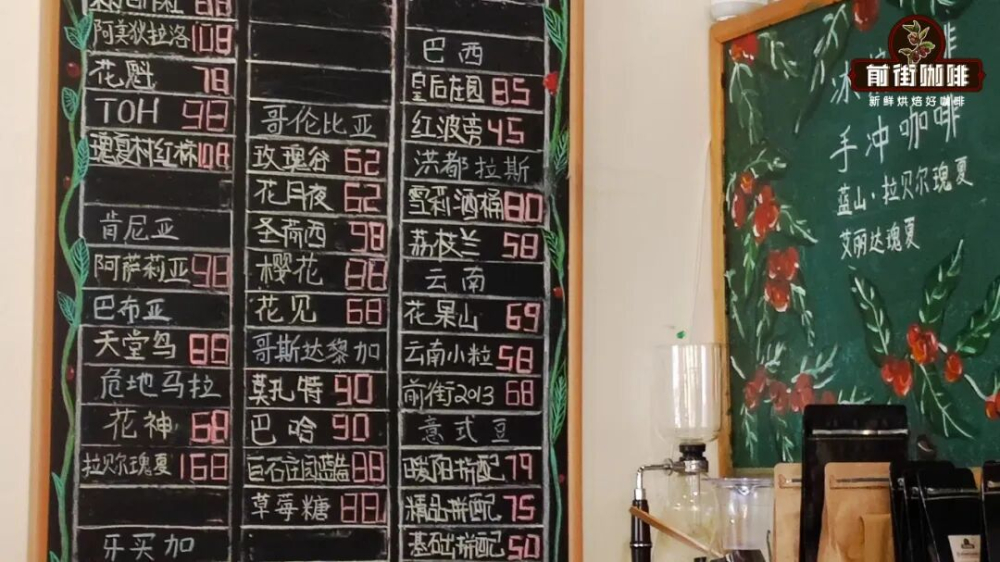 阿美狄拉洛 108
花魁 78
TOH 98
瑰夏村红标 108
肯尼亚
阿萨莉亚 98
巴布亚
天堂鸟 88
危地马拉
花神 68
拉贝尔瑰夏 168
牙买加
哥伦比亚
玫瑰谷 62
花月夜 62
圣荷西 98
樱花 88
花见 68
哥斯达黎加
莫扎特 90
巴哈 90
巨石庄园蓝莓 88
草莓糖 88
巴西
皇后庄园 85
红波旁 45
洪都拉斯
雪莉酒桶 80
荔枝兰 58
云南
花果山 69
云南小粒 58
前街2013 68
意式豆
暖阳拼配 79
精品拼配 75
基础拼配 50
手冲咖啡
蓝山·拉贝尔瑰夏
艾丽达瑰夏
前街咖啡
新鲜烘焙好咖啡